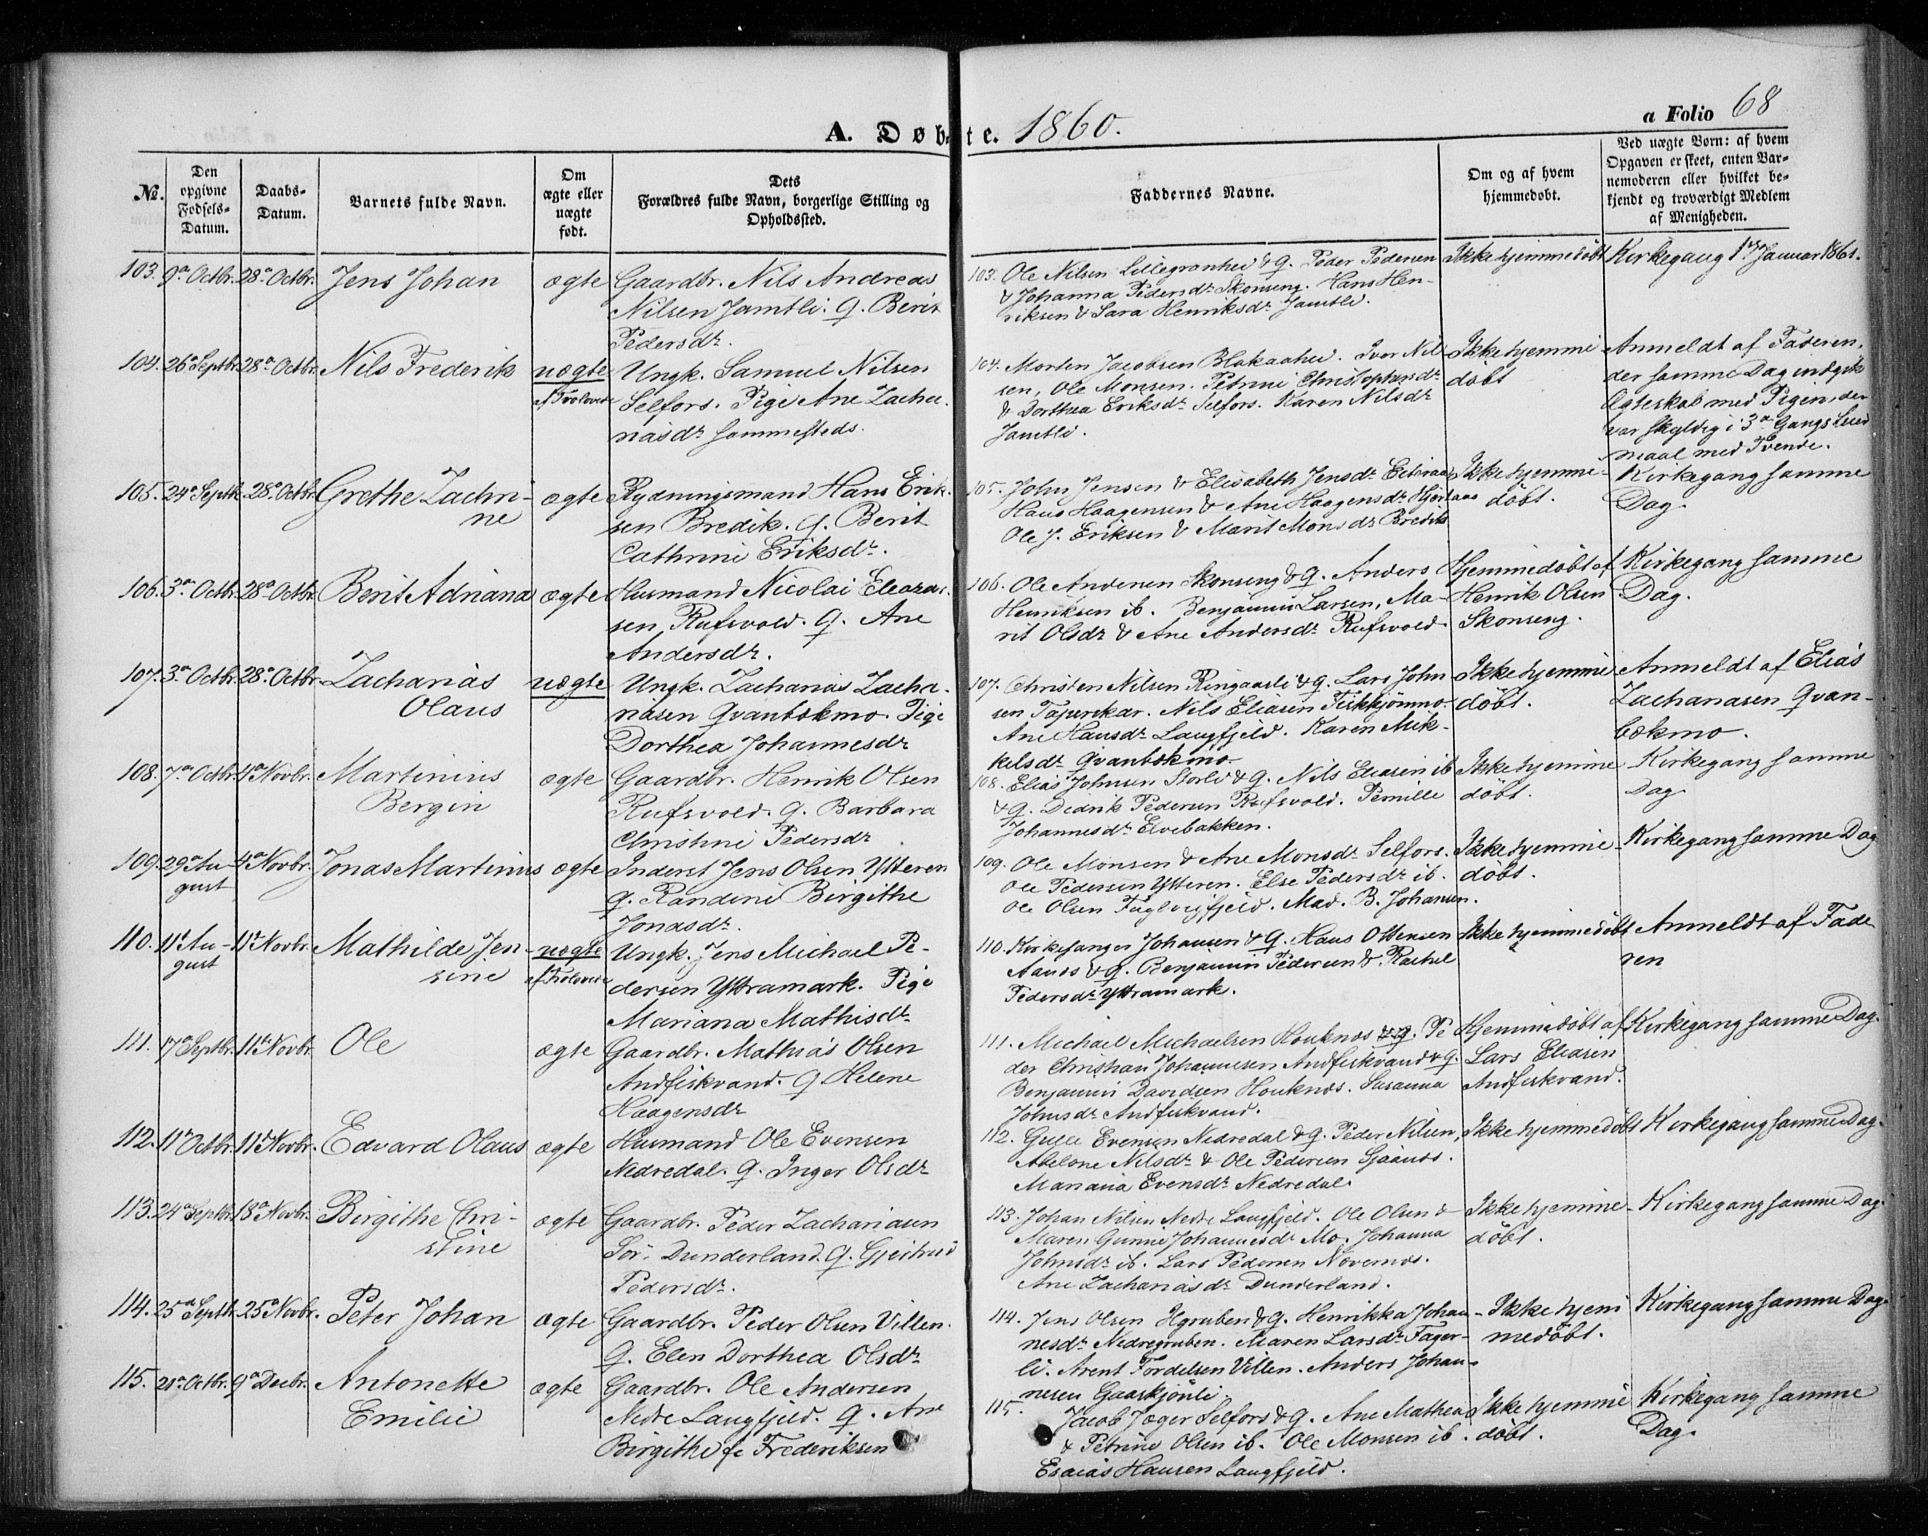 A. Døbte. 1860.
a Folio 68
No.
Den opgivne Fødsels-Datum.
Daabs-Datum.
Barnets fulde Navn.
Om ægte eller uægte født.
Dets Forældres fulde Navn, borgerlige Stilling og Opholdssted.
Faddernes Navne.
Om og af hvem hjemmedøbt.
Ved uægte Børn: af hvem Opgaven er skeet, enten Barnemoderen eller hvilket bekjendt og troværdigt Medlem af Menigheden.
103. 9de Octbr. 28de Octbr. Jens Johan ægte Gaardbr. Nils Andreas
Nilsen Jamtli. Q. Berit
Pedersdr.
103. Ole Nilsen Lillegrønhei & Q. Peder Pedersen
& Johanna Pedersdr Skonseng. Hans Hen-
riksen & Sara Henriksdr Jamtli.
Ikke hjemmedøbt
Kirkegang 1ste Januar 1861.
104. 26de Septbr. 28de Octbr. Nils Frederik uægte Ungk. Samuel Nilsen
af Trolovede Selfors. Pige Ane Zacha-
riasdr sammesteds.
104. Morten Jacobsen Blakaahei. Iver Nil-
sen, Ole Monsen. Petrine Christophersdr
& Dorthea Eriksdr Selfors. Karen Nilsdr
Jamtli.
Ikke hjemme
døbt
Anmeldt af Faderen,
der samme Dag indgik
Ægteskab med Pigen, der
var skyldig i 3die Gangs Leier
maal med Tvende.
105. 24de Septbr. 28de Octbr. Grethe Zachri-
ne
ægte Rydningsmand Hans Erik-
sen Bredik. Q. Berit
Cathrine Eriksdr.
105. John Jensen & Elisabeth Jensdr
Hans Haagensen & Ane Haagensdr Hjertaas
Ole J. Eriksen & Marit Monsdr Bredik
Ikke hjemme-
døbt.
Kirkegang samme
Dag.
106. 3die Octbr. 28de Octbr. Berit Adriana ægte Husmand Nicolai Eleazar-
sen, Rufsvold. Q. Ane
Andersdr.
106. Ole Andersen Skonseng & Q. Anders
Henriksen ib. Benjamin Larsen, Ma-
rit Olsdr & Ane Andersdr Rufsvold
Hjemmedøbt af
Henrik Olsen
Skonseng.
Kirkegang samme
Dag.
107. 3die Octbr. 28de Octbr. Zacharias
Olaus
uægte Ungk. Zacharias Zacha-
riasen Qvanbekmo. Pige
Dorthea Johannesdr
107. Christen Nilsen Ringaasli & Q. Lars John
sen Tapeskar. Nils Eliasen Fiskkjønmo.
Ane Hansdr Langfjeld. Karen Mik-
kelsdr Qvanbekmo.
Ikke hjemme
døbt.
Anmeldt af Elias
Zachariasen Qvan-
bækmo.
108. 7de Octbr. 4de Novbr. Martinius
Bergin
ægte Gaardbr. Henrik Olsen
Rufsvold. Q. Barbara
Christine Pedersdr
108. Elias Johnsen Storli & Q. Nils Eliasen ib
& Q. Didrik Pedersen Rufsvold. Pernille
Johannesdr Elvebakken.
Ikke hjemme
døbt.
Kirkegang samme
Dag
109. 29de Au-
gust
4de Novbr. Jonas Martinius ægte Inderst Jens Olsen Ytteren
Q. Randine Birgithe
Jonasdr.
109. Ole Monsen & Ane Monsdr Selfors.
Ole Pedersen Ytteren. Else Pedersdr ib.
Ole Olsen Fuglvigfjeld. Mad. B. Johansen.
Ikke hjemme-
døbt.
Kirkegang samme Dag
110. 11te Au-
gust
11te Novbr. Mathilde Jen-
sine
uægte
af Trolovede
Ungk. Jens Michael Pe-
dersen Yttramark. Pige
Mariana Mathisdr.
110. Kirkesanger Johansen & Q. Hans Ottersen
Aanes & Q. Benjamin Pedersen & Rachel
Pedersdr Yttramark.
Ikke hjemmedøbt
Anmeldt af Fade
ren
111. 17de Septbr. 11te Novbr. Ole ægte Gaardbr. Mathias Olsen
Andfiskvand. Q Helene
Haagensdr
111. Michael Michaelsen Houknes & Q. Pe
der Christian Johannesen Andfiskvand & Q.
Benjamin Davidsen Houknes. Susanna
Johnsdr Andfiskvand.
Hjemmedøbt af
Lars Eliasen
Andfiskvand.
Kirkegang samme Dag.
112. 11te Octbr. 11te Novbr. Edvard Olaus ægte Husmand Ole Evensen
Nedredal. Q. Inger Olsdr
112. Evensen Nedredal & Q. Peder Nilsen,
Abelone Nilsdr & Ole Pedersen Sjaanes.
Mariana Evensdr Nedredal.
Ikke hjemmedøbt
Kirkegang samme Dag.
113. 24de Septbr. 18de Novbr. Birgithe Chri-
stine
ægte Gaardbr. Peder Zachariasen
Sør-Dunderland. Q. Gjertrud
Pedersdr.
113. Johan Nilsen Nedre Langfjeld. Ole Olsen &
Maren Gunne Johannesdr Mo. Johanna
Johnsdr ib. Lars Pedersen Nøvernes.
Ane Zachariasdr Dunderland.
Ikke hjemme-
døbt.
Kirkegang samme Dag
114. 25de Septbr. 25de Novbr. Peter Johan ægte Gaardbr. Peder Olsen Villen.
Q. Elen Dorthea Olsdr
114. Jens Olsen & Q. Henrikka Johan
nesdr Nedregruben. Maren Larsdr Fager-
li. Arent Tordelsen Villen. Anders Johan-
nesen Gaaskjønli.
Ikke hjem
medøbt.
Kirkegang samme Dag
115. 21de Octbr. 9de Decbr. Antonette
Emilie
ægte Gaardbr. Ole Andersen
Nedre Langfjeld. Q. Ane
Birgithe fe Frederiksen
115. Jacob Jæger Selfors & Q. Ane Mathea
& Petrine Olsen ib. Ole Monsen ib.
Esaias Hansen Langfjeld.
Ikke hjemme
døbt.
Kirkegang samme
Dag.